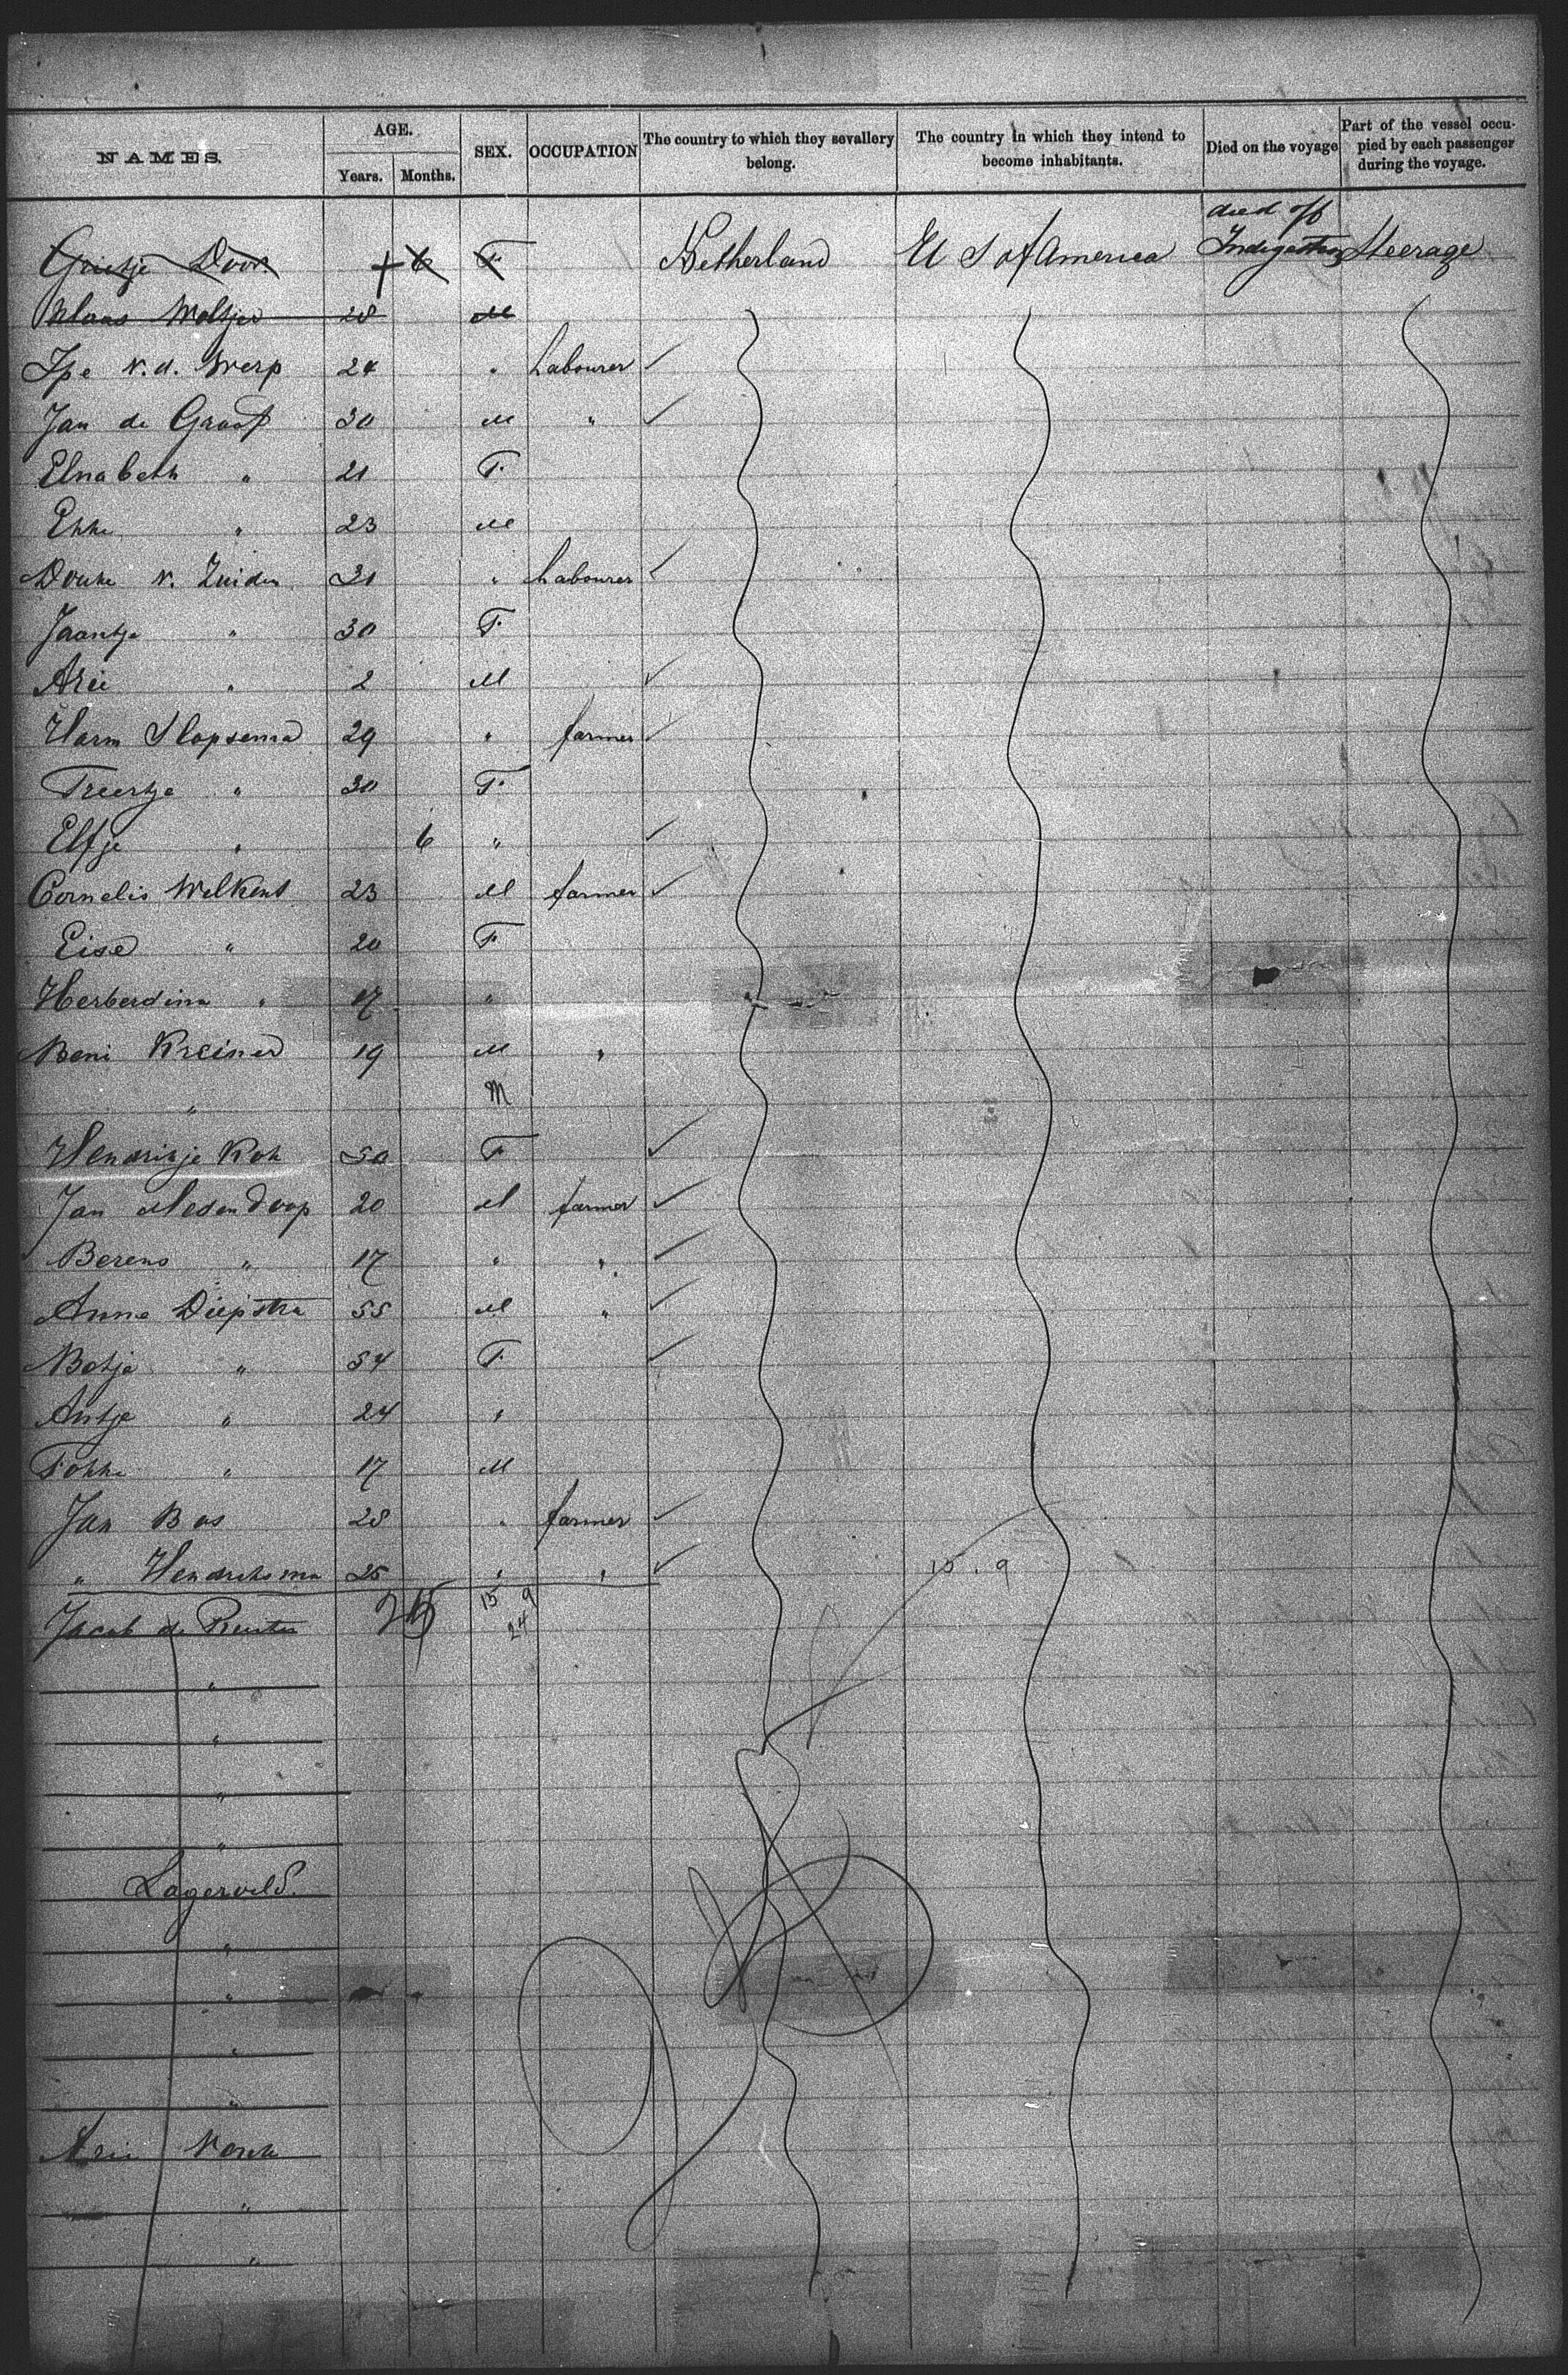 NAMES. AGE. Years. Months. SEX. OCCUPATION The country to which they sevallery belong. The country in which they intend to become inhabitants. Died on the voyage Part of the vessel occupied by each passenger during the voyage.
Grietje Door 6 F Netherland U S of America died off Indigestion Steerage
Klaas Woltjer 28 M
Ipe v.d. Werp 24 " Labourer ✓
Jan de Graaf 30 M " ✓
Elsabeth " 21 F.
Ekke " 23 M
Douwe v. Zuiden 31 " Labourer ✓
Jaantje " 30 F.
Arie " 2 M ✓
Harm Slopsema 29 " farmer ✓
Treertje " 30 F.
Elfje " 6 " ✓
Cornelis Welkens 23 M farmer ✓
Eise " 20 F.
Herberdina " 17 "
Beni Kreiner 19 M "
" M
Hendrikje Kok 50 F ✓
Jan Medendorp 20 M farmer ✓
Berend " 17 " " ✓
Anne Diepstra 55 M " ✓
Botje " 54 F. ✓
Antje " 24 "
Fokke " 17 M
Jan Bos 28 " farmer ✓
" Hendriksma 25 " " ✓
15 9 15.9
Jacob de Ruiter 24
"
"
"
"
Lagerveld.
"
"
"
"
Arie
"
"